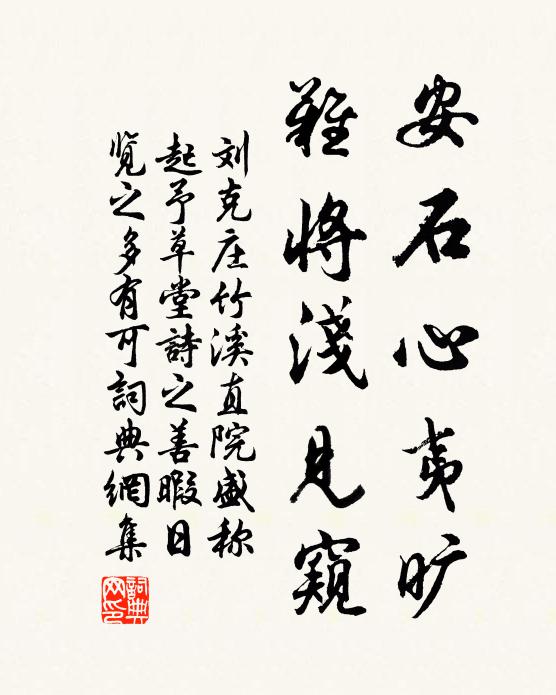 安石心夷旷
難將淺見窺
刘克庄竹溪直院盛称
起予草堂詩之善暇日
覽之多有可詞典網集
詞典网印